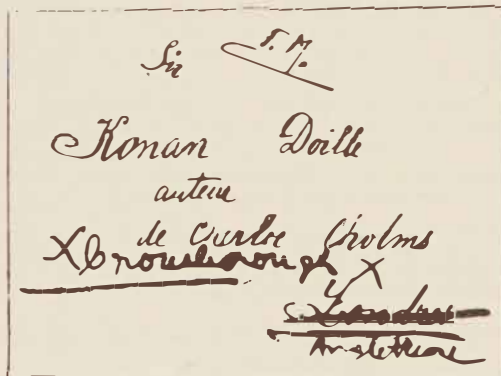 Sir T. M.
Konan Doille
auteur
de Cherloc Cholms
X Crowborough X
Londres
Angleterre